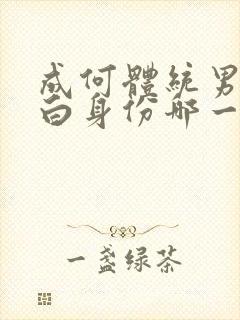 成何體統男
白身份哪一
一盏绿茶